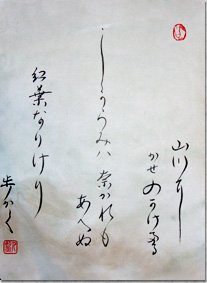 山川に
かせのかけたる
しからみハ 奈かれも
あへぬ
紅葉なりけり
歩かく